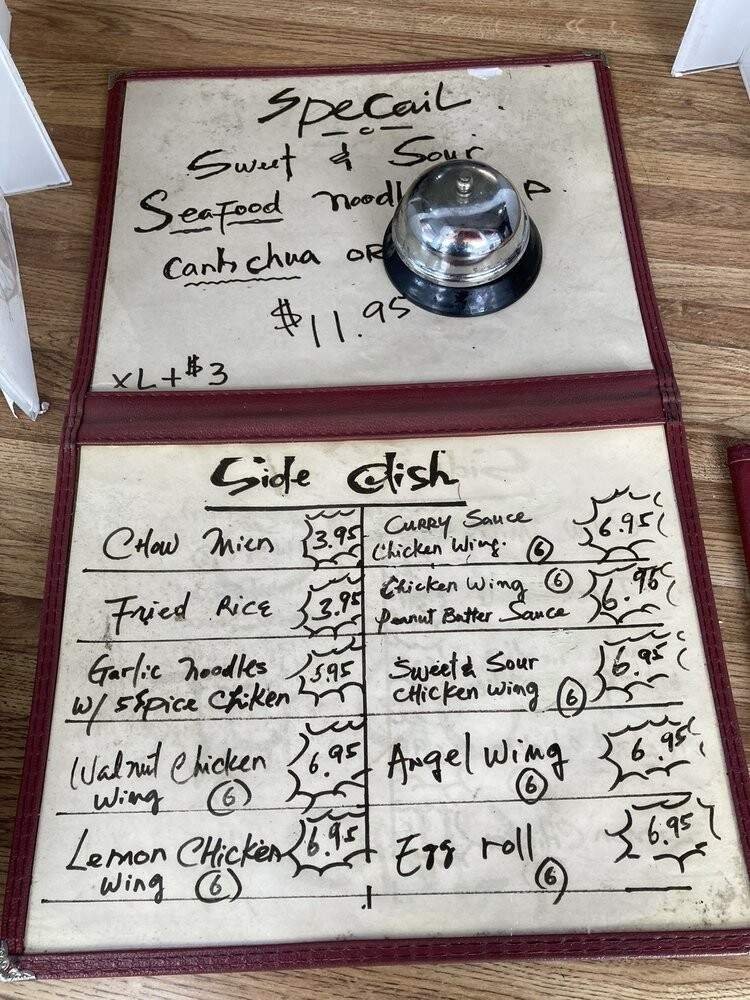 Specail
Sweet & Sour
Seafood
canh chua OR
$11.95
XL + $3
Side dish
Chow mien 3.95
Fried Rice 3.95
Garlic noodles
w/ 5 Spice Chiken 5.95
Walnut Chicken
Wing ⑥ 6.95
Lemon CHicken
Wing ⑥ 6.95
CURRY Sauce
Chicken Wing. ⑥ 6.95
Chicken Wing ⑥
Peanut Butter Sauce 6.95
Sweet & Sour
CHicken wing ⑥ 6.95
Angel Wing
⑥ 6.95
Egg roll
⑥ 6.95